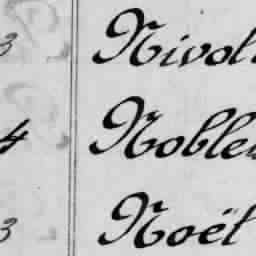 3 Nivol
4 Noble
3 Noël